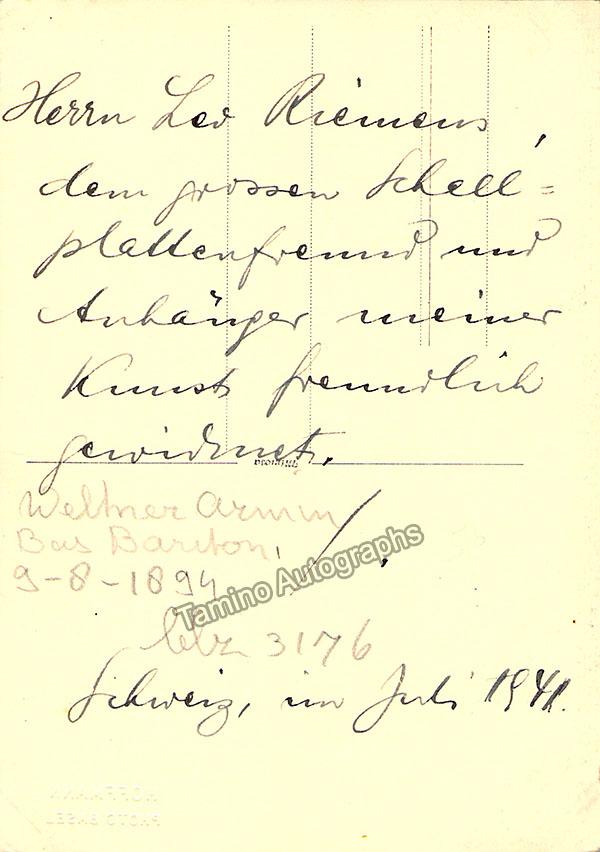 Herrn Leo Riemens,
dem grossen Schall=
plattenfreund und
Anhänger meiner
Kunst freundlich
gewidmet.
Weltner Armin
Bas Bariton,
9-8-1894
Tamino Autographs
3176
Schweiz, im Juli 1941.
HOFFMANN
PHOTO BASEL